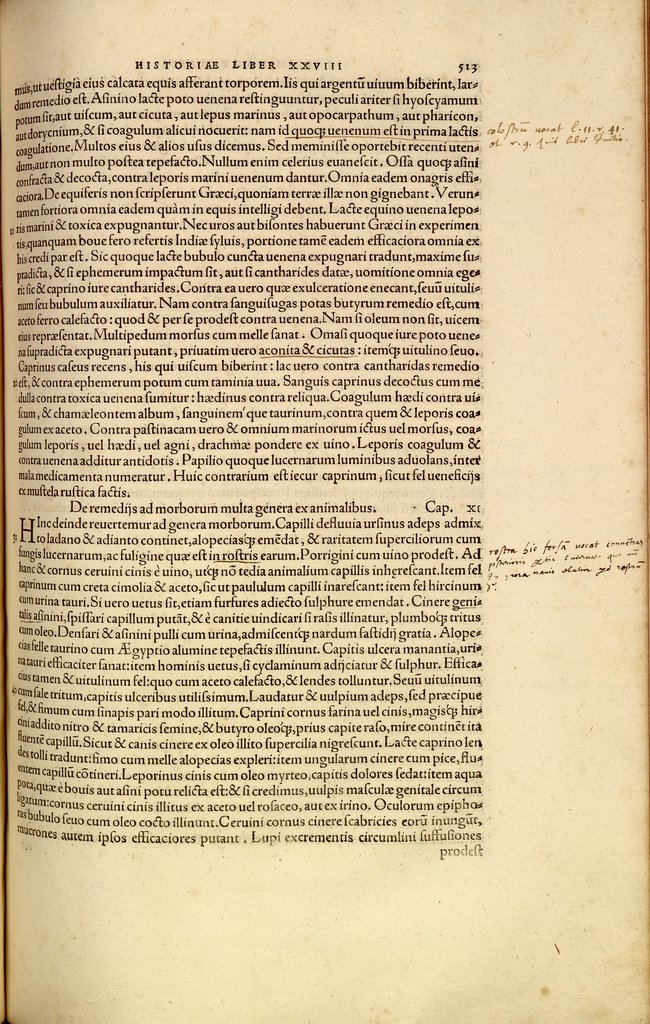 HISTORIAE LIBER XXVIII 513
mus, ut uestigia eius calcata equis afferant torporem. Iis qui argentũ uiuum biberint, lar-
dum remedio est. Asinino lacte poto uenena restinguuntur, peculiariter si hyoscyamum
potum sit, aut uiscum, aut cicuta, aut lepus marinus, aut opocarpathum, aut pharicon,
aut dorycnium, & si coagulum alicui nocuerit: nam id quoq; uenenum est in prima lactis
coagulatione. Multos eius & alios usus dicemus. Sed meminisse oportebit recenti uten-
dum, aut non multo postea tepefacto. Nullum enim celerius euanescit. Ossa quoq; asini
confracta & decocta, contra leporis marini uenenum dantur. Omnia eadem onagris effi-
caciora. De equiferis non scripserunt Græci, quoniam terræ illæ non gignebant. Verun-
tamen fortiora omnia eadem quàm in equis intelligi debent. Lacte equino uenena lepo-
ris marini & toxica expugnantur. Nec uros aut bisontes habuerunt Græci in experimen
tis, quanquam boue fero refertis Indiæ syluis, portione tamẽ eadem efficaciora omnia ex
his credi par est. Sic quoque lacte bubulo cuncta uenena expugnari tradunt, maxime su-
pradicta, & si ephemerum impactum sit, aut si cantharides datæ, uomitione omnia ege-
ri: sic & caprino iure cantharides. Cõtra ea uero quæ exulceratione enecant, seuũ uituli-
num seu bubulum auxiliatur. Nam contra sanguisugas potas butyrum remedio est, cum
aceto ferro calefacto: quod & per se prodest contra uenena. Nam si oleum non sit, uicem
eius repræsentat. Multipedum morsus cum melle sanat. Omasi quoque iure poto uene-
na supradicta expugnari putant, priuatim uero aconita & cicutas: itemq; uitulino seuo.
Caprinus caseus recens, his qui uiscum biberint: lac uero contra cantharidas remedio
est, & contra ephemerum potum cum taminia uua. Sanguis caprinus decoctus cum me
dulla contra toxica uenena sumitur: hædinus contra reliqua. Coagulum hædi contra ui-
scum, & chamæleontem album, sanguinem que taurinum, contra quem & leporis coa-
gulum ex aceto. Contra pastinacam uero & omnium marinorum ictus uel morsus, coa-
gulum leporis, uel hædi, uel agni, drachmæ pondere ex uino. Leporis coagulum &
contra uenena additur antidotis. Papilio quoque lucernarum luminibus aduolans, inter
mala medicamenta numeratur. Huic contrarium est iecur caprinum, sicut fel ueneficijs
ex mustela rustica factis.
De remedijs ad morborum multa genera ex animalibus. Cap. XI
HInc deinde reuertemur ad genera morborum. Capilli defluuia ursinus adeps admix
to ladano & adianto continet, alopeciasq; emẽdat, & raritatem superciliorum cum
fungis lucernarum, ac fuligine quæ est in rostris earum. Porrigini cum uino prodest. Ad
hanc & cornus ceruini cinis è uino, utq; nõ tedia animalium capillis inherescant. Item fel
caprinum cum creta cimolia & aceto, sic ut paululum capilli inarescant: item fel hircinum
cum urina tauri. Si uero uetus sit, etiam furfures adiecto sulphure emendat. Cinere geni-
talis asinini, spissari capillum putãt, & è canitie uindicari si rasis illinatur, plumboq; tritus
cum oleo. Densari & asinini pulli cum urina, admiscentq; nardum fastidij gratia. Alope-
cias felle taurino cum Ægyptio alumine tepefactis illinunt. Capitis ulcera manantia, uri-
na tauri efficaciter sanat: item hominis uetus, si cyclaminum adijciatur & sulphur. Effica-
cius tamen & uitulinum fel: quo cum aceto calefacto, & lendes tolluntur. Seuũ uitulinum
cum sale tritum, capitis ulceribus utilissimum. Laudatur & uulpium adeps, sed præcipue
fel, & fimum cum sinapis pari modo illitum. Caprini cornus farina uel cinis, magisq; hir-
cini addito nitro & tamaricis semine, & butyro oleoq;, prius capite raso, mire continẽt ita
fluentẽ capillũ. Sicut & canis cinere ex oleo illito supercilia nigrescunt. Lacte caprino len
des tolli tradunt: fimo cum melle alopecias expleri: item ungularum cinere cum pice, flu-
entem capillũ cõtineri. Leporinus cinis cum oleo myrteo, capitis dolores sedat: item aqua
pota, quæ è bouis aut asini potu relicta est: & si credimus, uulpis masculæ genitale circum
ligatum: cornus ceruini cinis illitus ex aceto uel rosaceo, aut ex irino. Oculorum epipho-
ras bubulo seuo cum oleo cocto illinunt. Ceruini cornus cinere scabricies eorũ inungũt,
mucrones autem ipsos efficaciores putant. Lupi excrementis circumlini suffusiones
prodest
colostrũ uocat l. 11. r. 41.
et r. 9.
rostra hic forsã uocat